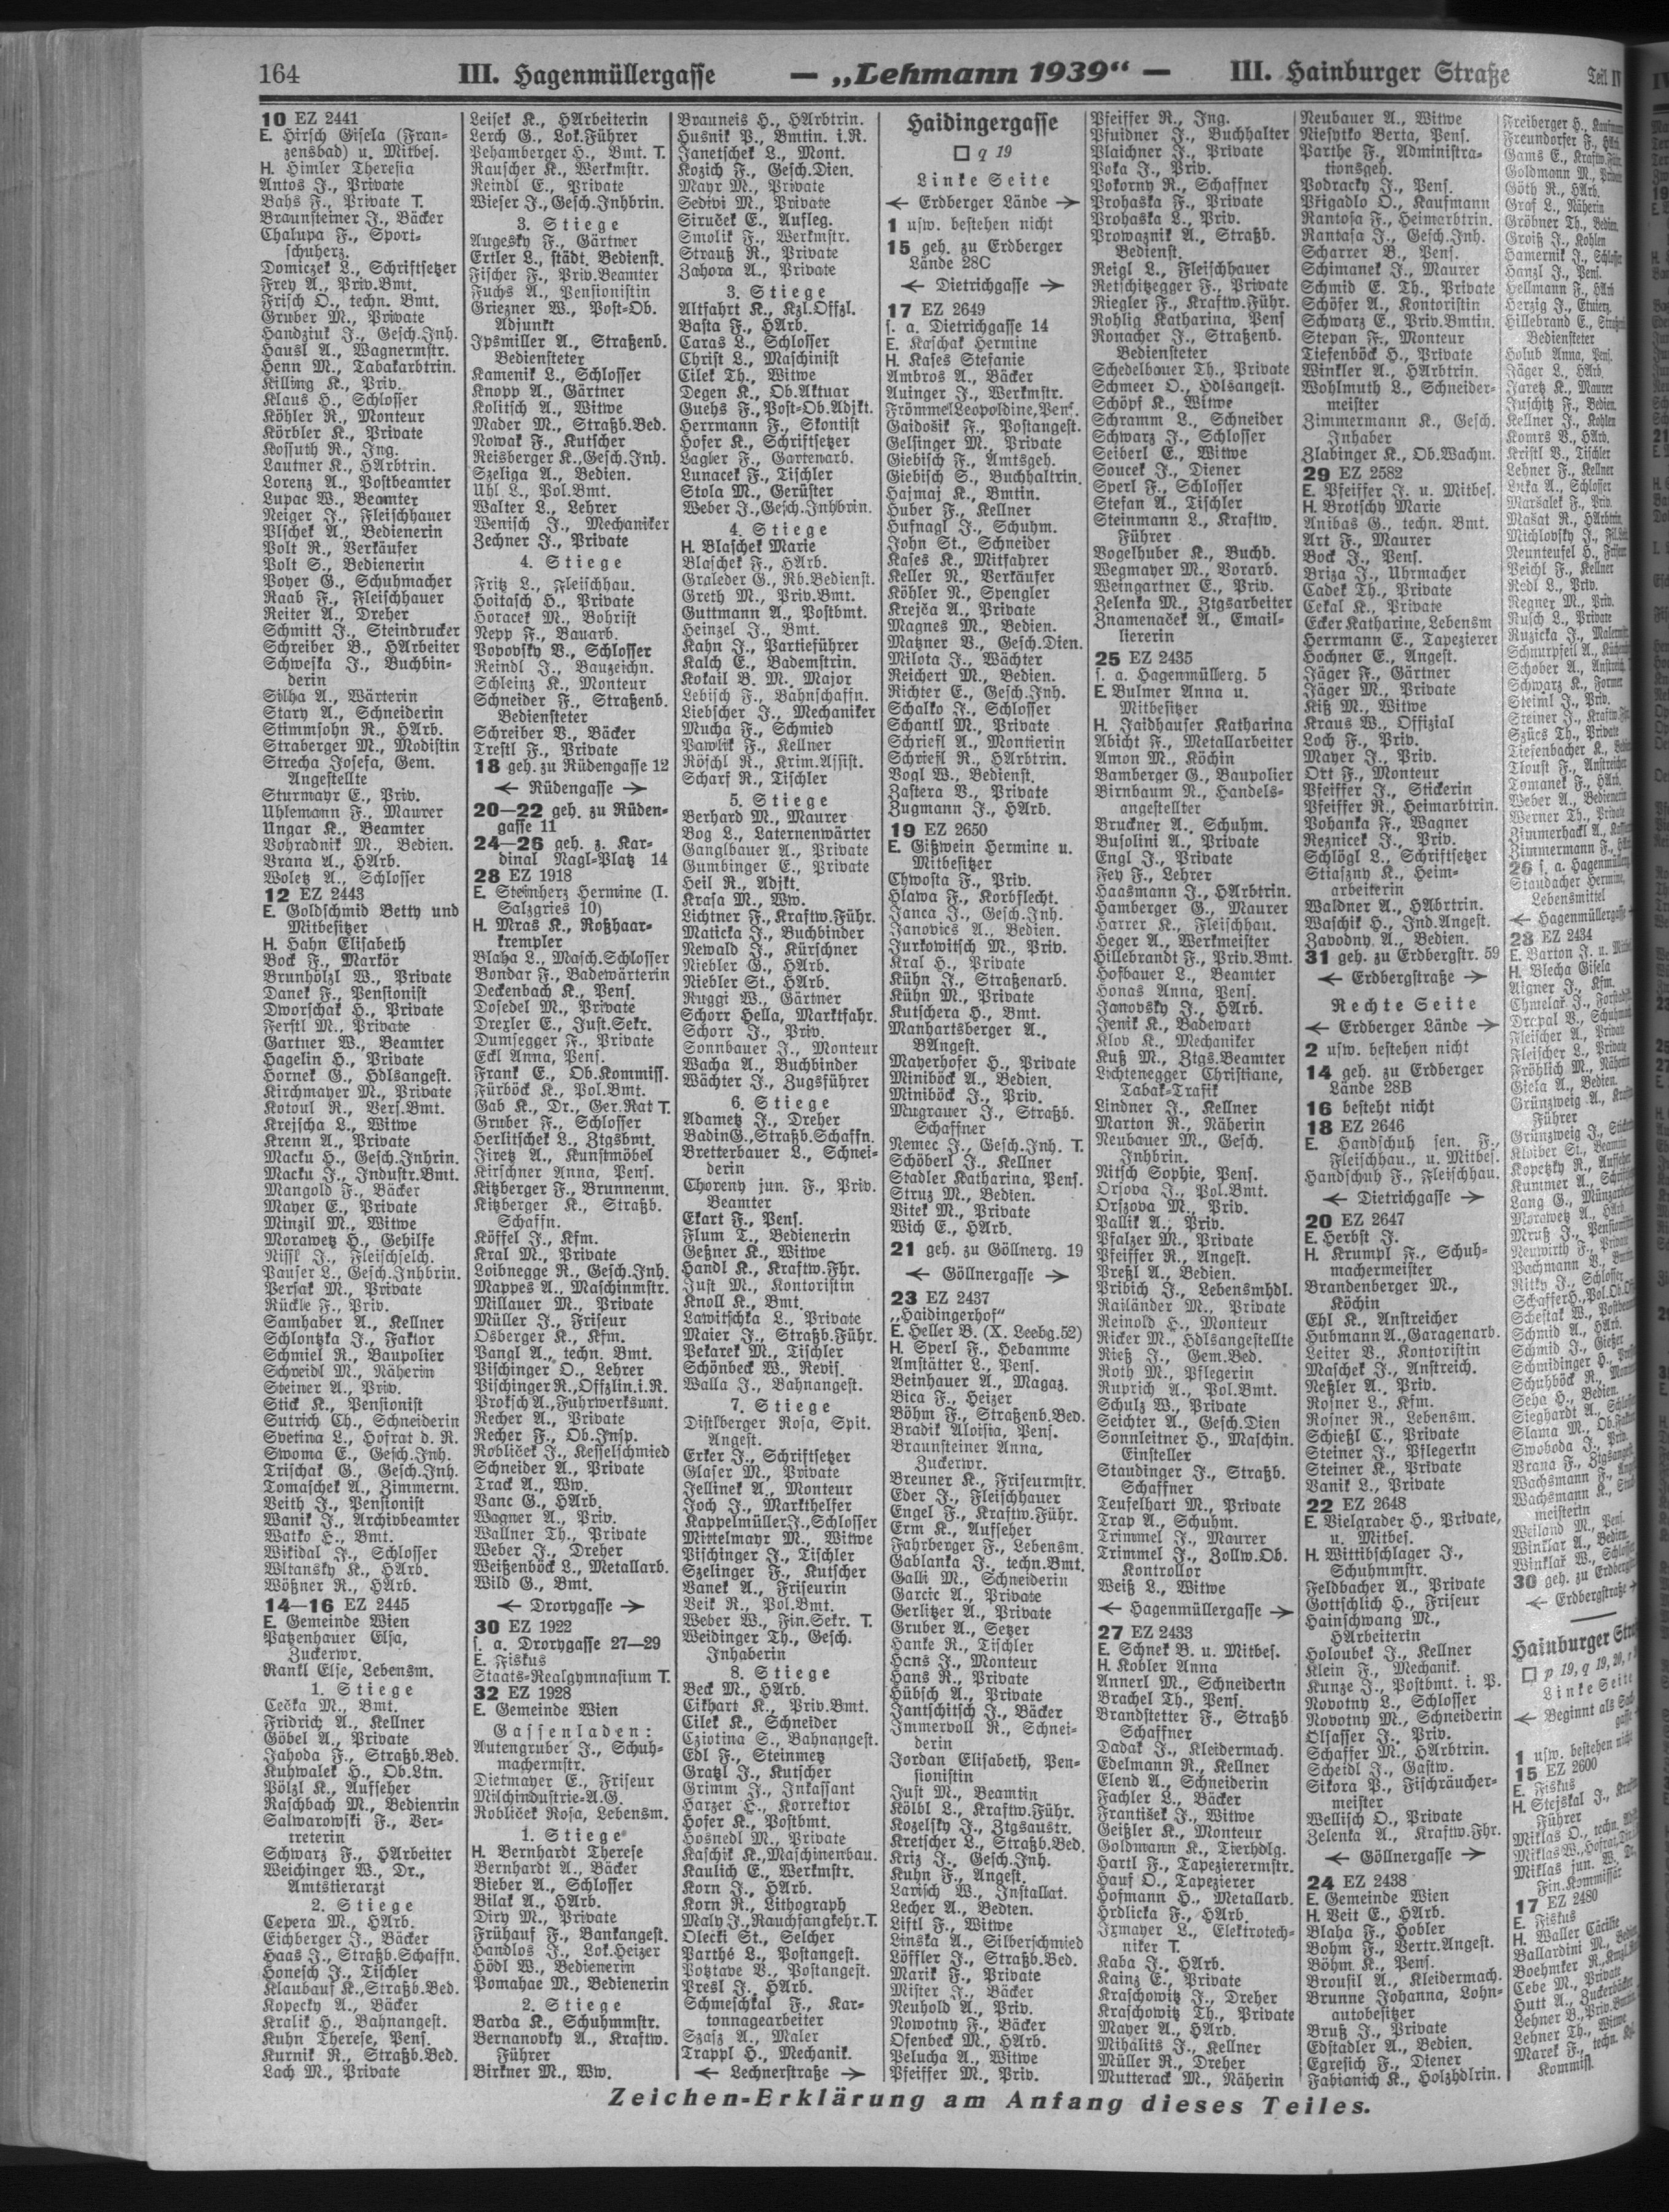 164
III. Hagenmüllergasse
— „Lehmann 1939“ —
III. Hainburger Straße
Teil IV
10 EZ 2441
E. Hirsch Gisela (Fran-
zensbad) u. Mitbes.
H. Himler Theresia
Antos J., Private
Bahs F., Private T.
Braunsteiner J., Bäcker
Chalupa F., Sport-
schuherz.
Domiczek L., Schriftsetzer
Frey A., Priv.Bmt.
Frisch O., techn. Bmt.
Gruber M., Private
Handziuk J., Gesch.Inh.
Hausl A., Wagnermstr.
Henn M., Tabakarbtrin.
Killing K., Priv.
Klaus H., Schlosser
Köhler R., Monteur
Körbler K., Private
Kossuth R., Ing.
Lautner K., HArbtrin.
Lorenz A., Postbeamter
Lupac W., Beamter
Neiger J., Fleischhauer
Plschek A., Bedienerin
Polt R., Verkäufer
Polt S., Bedienerin
Poyer G., Schuhmacher
Raab F., Fleischhauer
Reiter A., Dreher
Schmitt J., Steindrucker
Schreiber B., HArbeiter
Schweska J., Buchbin-
derin
Silha A., Wärterin
Stary A., Schneiderin
Stimmsohn R., HArb.
Straberger M., Modistin
Strecha Josefa, Gem.
Angestellte
Sturmayr E., Priv.
Uhlemann F., Maurer
Ungar K., Beamter
Vohradnik M., Bedien.
Vrana A., HArb.
Woletz A., Schlosser
12 EZ 2443
E. Goldschmid Betty und
Mitbesitzer
H. Hahn Elisabeth
Bock F., Markör
Brunhölzl W., Private
Danek F., Pensionist
Dworschak H., Private
Ferstl M., Private
Gartner W., Beamter
Hagelin H., Private
Hornek G., Hdlsangest.
Kirchmayer M., Private
Kotoul R., Vers.Bmt.
Krejscha L., Witwe
Krenn A., Private
Macku H., Gesch.Inhrin.
Macku J., Industr.Bmt.
Mangold F., Bäcker
Mayer E., Private
Minzil M., Witwe
Morawetz H., Gehilfe
Nissl J., Fleischselch.
Pauser L., Gesch.Inhbrin.
Persak M., Private
Rückle F., Priv.
Samhaber A., Kellner
Schlontzka J., Faktor
Schmiel R., Baupolier
Schreibl M., Näherin
Steiner A., Priv.
Stick K., Pensionist
Sutrich Ch., Schneiderin
Svetina L., Hofrat d. R.
Swoma E., Gesch.Inh.
Trischak G., Gesch.Inh.
Tomaschek A., Zimmerm.
Veith J., Pensionist
Wanik J., Archivbeamter
Watko E., Bmt.
Wikidal J., Schlosser
Wltansky K., HArb.
Wößner R., HArb.
14—16 EZ 2445
E. Gemeinde Wien
Patzenhauer Elsa,
Zuckerwr.
Rankl Else, Lebensm.
1. Stiege
Cečka M., Bmt.
Fridrich A., Kellner
Göbel A., Private
Jahoda F., Straßb.Bed.
Kuhwalek H., Ob.Ltn.
Pölzl K., Aufseher
Raschbach M., Bedienrin
Salwarowski F., Ver-
treterin
Schwarz F., HArbeiter
Weichinger W., Dr.,
Amtstierarzt
2. Stiege
Cepera M., HArb.
Eichberger J., Bäcker
Haas J., Straßb.Schaffn.
Honesch J., Tischler
Klaubauf K., Straßb.Bed.
Kopecky A., Bäcker
Kralik H., Bahnangest.
Kuhn Therese, Pens.
Kurnik R., Straßb.Bed.
Lach M., Private
Leisek K., HArbeiterin
Lerch G., Lok.Führer
Pehamberger H., Bmt. T.
Rauscher K., Werkmstr.
Reindl E., Private
Wieser J., Gesch.Inhbrin.
3. Stiege
Augesky F., Gärtner
Ertler L., städt. Bedienst.
Fischer F., Priv.Beamter
Fuchs A., Pensionistin
Griezner W., Post-Ob.
Adjunkt
Ipsmiller A., Straßenb.
Bediensteter
Kamenik L., Schlosser
Knopp A., Gärtner
Kolitsch A., Witwe
Mader M., Straßb.Bed.
Nowak F., Kutscher
Reisberger K., Gesch.Inh.
Szeliga A., Bedien.
Uhl L., Pol.Bmt.
Walter L., Lehrer
Wenisch J., Mechaniker
Zechner J., Private
4. Stiege
Fritz L., Fleischhau.
Hoitasch H., Private
Horacek M., Bohrist
Nepp F., Bauarb.
Popovsky B., Schlosser
Reindl J., Bauzeichn.
Schleinz K., Monteur
Schneider F., Straßenb.
Bediensteter
Schreiber V., Bäcker
Trestl F., Private
18 geh. zu Rüdengasse 12
← Rüdengasse →
20—22 geh. zu Rüden-
gasse 11
24—26 geh. z. Kar-
dinal Nagl-Platz 14
28 EZ 1918
E. Steinherz Hermine (I.
Salzgries 10)
H. Mras K., Roßhaar-
krempler
Blaha L., Masch.Schlosser
Bondar F., Badewärterin
Deckenbach K., Pens.
Dosedel M., Private
Drexler E., Just.Sekr.
Dumsegger F., Private
Eckl Anna, Pens.
Frank E., Ob.Kommiss.
Fürböck K., Pol.Bmt.
Gab K., Dr., Ger.Rat T.
Gruber F., Schlosser
Herlitschek L., Ztgsbmt.
Jiretz A., Kunstmöbel
Kirschner Anna, Pens.
Kitzberger F., Brunnenm.
Kitzberger K., Straßb.
Schaffn.
Köffel J., Kfm.
Kral M., Private
Loibnegge R., Gesch.Inh.
Mappes A., Maschinmstr.
Millauer M., Private
Müller J., Friseur
Osberger K., Kfm.
Pangl A., techn. Bmt.
Pischinger O., Lehrer
Pischinger R., Offzlin.i.R.
Proksch A., Fuhrwerksunt.
Recher A., Private
Recher F., Ob.Insp.
Robliček J., Kesselschmied
Schneider A., Private
Track A., Ww.
Vanc G., HArb.
Wagner A., Priv.
Wallner Th., Private
Weber J., Dreher
Weißenböck L., Metallarb.
Wild G., Bmt.
← Drorygasse →
30 EZ 1922
s. a. Drorygasse 27—29
E. Fiskus
Staats-Realgymnasium T.
32 EZ 1928
E. Gemeinde Wien
Gassenladen:
Autengruber J., Schuh-
machermstr.
Dietmayer E., Friseur
Milchindustrie-A.G.
Robliček Rosa, Lebensm.
1. Stiege
H. Bernhardt Therese
Bernhardt A., Bäcker
Bieber A., Schlosser
Bilak A., HArb.
Diry M., Private
Frühauf F., Bankangest.
Handlos J., Lok.Heizer
Hödl W., Bedienerin
Pomahae M., Bedienerin
2. Stiege
Barda K., Schuhmmstr.
Bernanovky A., Kraftw.
Führer
Birkner M., Ww.
Brauneis H., HArbtrin.
Husnik P., Bmtin. i.R.
Janetschek L., Mont.
Kozich F., Gesch.Dien.
Mayr M., Private
Sedivi M., Private
Siruček E., Aufleg.
Smolik F., Werkmstr.
Strauß R., Private
Zahora A., Private
3. Stiege
Altfahrt K., Kzl.Offzl.
Basta F., HArb.
Caras L., Schlosser
Christ L., Maschinist
Cilek Th., Witwe
Degen K., Ob.Aktuar
Guehs F., Post-Ob.Adjkt.
Herrmann F., Skontist
Hofer K., Schriftsetzer
Lagler F., Gartenarb.
Lunacek F., Tischler
Stola M., Gerüster
Weber J., Gesch.Inhbrin.
4. Stiege
H. Blaschek Marie
Blaschek F., HArb.
Graleder G., Rb.Bedienst.
Greth M., Priv.Bmt.
Guttmann A., Postbmt.
Heinzel J., Bmt.
Kahn J., Partieführer
Kalch E., Bademstrin.
Kokail B. M., Major
Lebisch F., Bahnschaffn.
Liebscher J., Mechaniker
Mucha F., Schmied
Pawlik F., Kellner
Röschl R., Krim.Assist.
Scharf R., Tischler
5. Stiege
Berhard M., Maurer
Bog L., Laternenwärter
Ganglbauer A., Private
Gumbinger E., Private
Heil R., Adjkt.
Krasa M., Ww.
Lichtner F., Kraftw.Führ.
Maticka J., Buchbinder
Newald J., Kürschner
Niebler G., HArb.
Niebler St., HArb.
Ruggi W., Gärtner
Schorr Hella, Marktfahr.
Schorr J., Priv.
Sonnbauer J., Monteur
Wacha A., Buchbinder
Wächter J., Zugsführer
6. Stiege
Adametz J., Dreher
Badin G., Straßb.Schaffn.
Bretterbauer L., Schnei-
derin
Choreny jun. F., Priv.
Beamter
Ekart F., Pens.
Flum T., Bedienerin
Geßner K., Witwe
Handl K., Kraftw.Fhr.
Just M., Kontoristin
Knoll K., Bmt.
Lawitschka L., Private
Maier J., Straßb.Führ.
Pekarek M., Tischler
Schönbeck W., Revis.
Walla J., Bahnangest.
7. Stiege
Distlberger Rosa, Spit.
Angest.
Erker J., Schriftsetzer
Glaser M., Private
Jellinek A., Monteur
Joch J., Markthelfer
Kappelmüller J., Schlosser
Mittelmayr M., Witwe
Pischinger J., Tischler
Szelinger F., Kutscher
Vanek A., Friseurin
Veik R., Pol.Bmt.
Weber W., Fin.Sekr. T.
Weidinger Th., Gesch.
Inhaberin
8. Stiege
Beck M., HArb.
Cikhart K., Priv.Bmt.
Cilek K., Schneider
Cziotina S., Bahnangest.
Edl F., Steinmetz
Gratzl J., Kutscher
Grimm J., Inkassant
Harzer H., Korrektor
Hofer K., Postbmt.
Hosnedl M., Private
Kaschik K., Maschinenbau.
Kaulich E., Werkmstr.
Korn J., HArb.
Korn R., Lithograph
Maly J., Rauchfangkehr.T.
Olečki St., Selcher
Parthé L., Postangest.
Potztave B., Postangest.
Presl J., HArb.
Schmeschkal F., Kar-
tonnagearbeiter
Szasz A., Maler
Trappl H., Mechanik.
← Lechnerstraße →
Haidingergasse
□ q 19
Linke Seite
← Erdberger Lände →
1 usw. bestehen nicht
15 geh. zu Erdberger
Lände 28C
← Dietrichgasse →
17 EZ 2649
s. a. Dietrichgasse 14
E. Kaschak Hermine
H. Kases Stefanie
Ambros A., Bäcker
Auinger J., Werkmstr.
Frömmel Leopoldine, Pens.
Gaidošik F., Postangest.
Gelsinger M., Private
Giebisch F., Amtsgeh.
Giebisch S., Buchhaltrin.
Hajmaj K., Bmtin.
Huber F., Kellner
Hufnagl J., Schuhm.
John St., Schneider
Kases K., Mitfahrer
Keller R., Verkäufer
Köhler R., Spengler
Krejča A., Private
Magnes M., Bedien.
Matzner V., Gesch.Dien.
Milota J., Wächter
Reichert M., Bedien.
Richter E., Gesch.Inh.
Schalko J., Schlosser
Schantl M., Private
Schriefl A., Montierin
Schriefl R., HArbtrin.
Vogl W., Bedienst.
Zastera B., Private
Zugmann J., HArb.
19 EZ 2650
E. Gißwein Hermine u.
Mitbesitzer
Chwosta F., Priv.
Hlawa F., Korbflecht.
Janca J., Gesch.Inh.
Janovics A., Bedien.
Jurkowitsch M., Priv.
Kral H., Private
Kühn J., Straßenarb.
Kühn M., Private
Kutschera H., Bmt.
Manhartsberger A.,
BAngest.
Mayerhofer H., Private
Miniböck A., Bedien.
Miniböck J., Priv.
Mugrauer J., Straßb.
Schaffner
Nemec J., Gesch.Inh. T.
Schöberl J., Kellner
Stadler Katharina, Pens.
Struz M., Bedien.
Vitek M., Private
Wich E., HArb.
21 geh. zu Göllnerg. 19
← Göllnergasse →
23 EZ 2437
„Haidingerhof“
E. Heller B. (X. Leebg.52)
H. Sperl F., Hebamme
Amstätter L., Pens.
Beinhauer A., Magaz.
Bica F., Heizer
Böhm F., Straßenb.Bed.
Bradik Aloisia, Pens.
Braunsteiner Anna,
Zuckerwr.
Breuner K., Friseurmstr.
Eder J., Fleischhauer
Engel F., Kraftw.Führ.
Erm K., Aufseher
Fahrberger F., Lebensm.
Gablanka J., techn.Bmt.
Galli M., Schneiderin
Garcic A., Private
Gerlitzer A., Private
Gruber A., Setzer
Hanke R., Tischler
Hans J., Monteur
Hans R., Private
Hübsch A., Private
Jantschitsch J., Bäcker
Immervoll R., Schnei-
derin
Jordan Elisabeth, Pen-
sionistin
Just M., Beamtin
Kölbl L., Kraftw.Führ.
Kozelsky J., Ztgsaustr.
Kretscher L., Straßb.Bed.
Kriz J., Gesch.Inh.
Kuhn F., Angest.
Larisch W., Installat.
Lecher A., Bedien.
Liftl F., Witwe
Linska A., Silberschmied
Löffler J., Straßb.Bed.
Marik F., Private
Mister J., Bäcker
Neuhold A., Priv.
Nowotny F., Bäcker
Ofenbeck M., HArb.
Pelucha A., Witwe
Pfeiffer M., Priv.
Pfeiffer R., Ing.
Pfuidner J., Buchhalter
Plaichner J., Private
Poka J., Priv.
Pokorny R., Schaffner
Prohaska F., Private
Prohaska L., Priv.
Prowaznik A., Straßb.
Bedienst.
Reigl L., Fleischhauer
Retschitzegger F., Private
Riegler F., Kraftw.Führ.
Rohlig Katharina, Pens
Ronacher J., Straßenb.
Bediensteter
Schedelbauer Th., Private
Schmeer O., Hdlsangest.
Schöpf K., Witwe
Schramm L., Schneider
Schwarz J., Schlosser
Seiberl E., Witwe
Soucek J., Diener
Sperl F., Schlosser
Stefan A., Tischler
Steinmann L., Kraftw.
Führer
Vogelhuber K., Buchb.
Wegmayer M., Vorarb.
Weingartner E., Priv.
Zelenka M., Ztgsarbeiter
Znamenaček A., Email-
liererin
25 EZ 2435
s. a. Hagenmüllerg. 5
E. Bulmer Anna u.
Mitbesitzer
H. Jaidhauser Katharina
Abicht F., Metallarbeiter
Amon M., Köchin
Bamberger G., Baupolier
Birnbaum R., Handels-
angestellter
Bruckner A., Schuhm.
Busolini A., Private
Engl J., Private
Fey F., Lehrer
Haasmann J., HArbtrin.
Hamberger G., Maurer
Harrer K., Fleischhau.
Heger A., Werkmeister
Hillebrandt F., Priv.Bmt.
Hofbauer L., Beamter
Honas Anna, Pens.
Janovsky J., HArb.
Jenik K., Badewart
Klov K., Mechaniker
Kuß M., Ztgs.Beamter
Lichtenegger Christiane,
Tabak-Trafik
Lindner J., Kellner
Marton R., Näherin
Neubauer M., Gesch.
Inhbrin.
Nitsch Sophie, Pens.
Orsova J., Pol.Bmt.
Orszova M., Priv.
Pallik A., Priv.
Pfalzer M., Private
Pfeiffer R., Angest.
Preßl A., Bedien.
Pribich J., Lebensmhdl.
Railänder M., Private
Reinold H., Monteur
Ricker M., Hdlsangestellte
Rieß J., Gem.Bed.
Roth M., Pflegerin
Ruprich A., Pol.Bmt.
Schulz W., Private
Seichter A., Gesch.Dien
Sonnleitner H., Maschin.
Einsteller
Staudinger J., Straßb.
Schaffner
Teufelhart M., Private
Trap A., Schuhm.
Trimmel J., Maurer
Trimmel J., Zollw.Ob.
Kontrollor
Weiß L., Witwe
← Hagenmüllergasse →
27 EZ 2433
E. Schnek B. u. Mitbes.
H. Kobler Anna
Annerl M., Schneiderin
Brachel Th., Pens.
Brandstetter F., Straßb
Schaffner
Dadak J., Kleidermach.
Edelmann R., Kellner
Elend A., Schneiderin
Fachler L., Bäcker
František J., Witwe
Geißler K., Monteur
Goldmann K., Tierhdlg.
Hartl F., Tapezierermstr.
Hauf O., Tapezierer
Hofmann H., Metallarb.
Hrdlicka F., HArb.
Irmayer L., Elektrotech-
niker T.
Kaba J., HArb.
Kainz E., Private
Kraschowitz J., Dreher
Kraschowitz Th., Private
Mayer A., HArb.
Mihälits J., Kellner
Müller R., Dreher
Mutterack M., Näherin
Neubauer A., Witwe
Niesytko Berta, Pens.
Parthe F., Administra-
tionsgeh.
Podracky J., Pens.
Prigadlo O., Kaufmann
Rantosa F., Heimarbtrin.
Rantasa J., Gesch.Inh.
Scharrer B., Pens.
Schimanek J., Maurer
Schmid E. Th., Private
Schöfer A., Kontoristin
Schwarz E., Priv.Bmtin.
Stepan F., Monteur
Tiefenböck H., Private
Winkler A., HArbtrin.
Wohlmuth L., Schneider-
meister
Zimmermann K., Gesch.
Inhaber
Zlabinger K., Ob.Wachm.
29 EZ 2582
E. Pfeiffer J. u. Mitbes.
H. Brotschy Marie
Anibas G., techn. Bmt.
Art F., Maurer
Bock J., Pens.
Briza J., Uhrmacher
Cadek Th., Private
Cekal K., Private
Ecker Katharine, Lebensm
Herrmann E., Tapezierer
Hochner E., Angest.
Jäger F., Gärtner
Jäger M., Private
Kiß M., Witwe
Kraus W., Offizial
Loch F., Priv.
Mayer J., Priv.
Ott F., Monteur
Pfeiffer J., Stickerin
Pfeiffer R., Heimarbtrin.
Pohanka F., Wagner
Reznicek J., Priv.
Schlögl L., Schriftsetzer
Stiaszny K., Heim-
arbeiterin
Waldner A., HAbrtrin.
Waschik H., Ind.Angest.
Zavodny A., Bedien.
31 geh. zu Erdbergstr. 59
← Erdbergstraße →
Rechte Seite
← Erdberger Lände →
2 usw. bestehen nicht
14 geh. zu Erdberger
Lände 28B
16 besteht nicht
18 EZ 2646
E. Handschuh sen. F.,
Fleischhau., u. Mitbes.
Handschuh F., Fleischhau.
← Dietrichgasse →
20 EZ 2647
E. Herbst J.
H. Krumpl F., Schuh-
machermeister
Brandenberger M.,
Köchin
Ehl K., Anstreicher
Hubmann A., Garagenarb.
Leiter B., Kontoristin
Maschek J., Anstreich.
Neßler A., Priv.
Rosner L., Kfm.
Rosner R., Lebensm.
Schießl C., Private
Steiner J., Pflegerin
Steiner K., Private
Vanik L., Private
22 EZ 2648
E. Vielgrader H., Private,
u. Mitbes.
H. Wittibschlager J.,
Schuhmmstr.
Feldbacher A., Private
Gottschlich H., Friseur
Hainschwang M.,
HArbeiterin
Holoubek J., Kellner
Klein F., Mechanik.
Kunze J., Postbmt. i. P.
Novotny L., Schlosser
Novotny M., Schneiderin
Olsasser J., Priv.
Schaffer M., HArbtrin.
Scheidl J., Gastw.
Sikora P., Fischräucher-
meister
Wellisch O., Private
Zelenka A., Kraftw.Fhr.
← Göllnergasse →
24 EZ 2438
E. Gemeinde Wien
H. Veit E., HArb.
Blaha F., Hobler
Bohm F., Vertr.Angest.
Böhm K., Pens.
Brousil A., Kleidermach.
Brunne Johanna, Lohn-
autobesitzer
Bruß J., Private
Edstadler A., Bedien.
Egresich F., Diener
Fabianich K., Holzhdlrin.
Freiberger H., Kaufmann
Freundorfer F., HArb.
Gams E., Kraftw.Führ.
Goldmann M., Private
Göth R., HArb.
Graf L., Näherin
Gröbner Th., Bedien.
Groiß J., Kohlen
Hamernik J., Schlosser
Hanzl J., Pens.
Hellmann F., HArb
Herzig J.,
Hillebrand E.,
Bediensteter
Holub Anna, Pens.
Jäger L., HArb.
Jaretz K., Maurer
Juschitz F., Bedien.
Kellner J., Kohlen
Komrs B., HArb.
Kristl B., Tischler
Lehner F., Kellner
Lnka A., Schlosser
Maršalek F., Priv.
Mašat R., HArbtrin.
Michlovsky J.,
Neunteufel H.,
Peichl F., Kellner
Redl L., Priv.
Regner M., Priv.
Rusch L., Private
Ruzicka J.,
Schnurpfeil A.,
Schober A.,
Schwarz K., Former
Steiml J., Priv.
Steiner J.,
Szücs Th., Private
Tiefenbacher K.,
Tloust F., Anstreicher
Tomanek F., HArb.
Weber A., Bedienerin
Werner Th., Private
Zimmerhackl A.,
Zimmermann F.,
26 s. a. Hagenmüllerg.
Staudacher Hermine,
Lebensmittel
← Hagenmüllergasse →
28 EZ 2434
E. Barton J. u. Mitbes.
H. Blecha Gisela
Aigner J., Kfm.
Chmelař J.,
Drapal B., Schuhm
Fleischer A., Private
Fleischer L., Private
Fröhlich M., Näherin
Giela A., Bedien.
Grünzweig A.,
Führer
Grünzweig J.,
Kloiber St., Beamtin
Kopetzky R., Aufseher
Kummer A.,
Lang G., Münzarbeiter
Morawetz A., HArb.
Mruß J., Pensionist
Neuwirth F., Private
Pachmann B.,
Ritky J., Schlosser
Schaffer H., Pol.Ob.
Schestak W.,
Schmid A., HArb.
Schmid J., Gießer
Schmidinger H.,
Schuhböck R.,
Seha H., Bedien.
Sieghardt A.,
Slama M.,
Swoboda J., Priv.
Vrana F., Ztgsangest.
Wachsmann F.,
Wachsmann K.,
meisterin
Weiland M., Pens.
Winklar A., Bedien.
Winklař W., Schlosser
30 geh. zu Erdbergstr.
← Erdbergstraße →
Hainburger Straße
□ p 19, q 19, 20,
Linke Seite
← Beginnt als
1 usw. bestehen nicht
15 EZ 2600
E. Fiskus
H. Stejskal J.,
Führer
Miklas O., techn.
Miklas W., Hofrat,
Miklas jun. W., Dr.,
Fin.Kommissär
17 EZ 2480
E. Fiskus
H. Waller Cäcilie
Ballardini M.,
Boehmker R.,
Cebe M., Private
Hutt A., Zuckerbäcker
Lehner B.,
Lehner Th., Witwe
Marek F., techn.
Kommiss.
Zeichen-Erklärung am Anfang dieses Teiles.